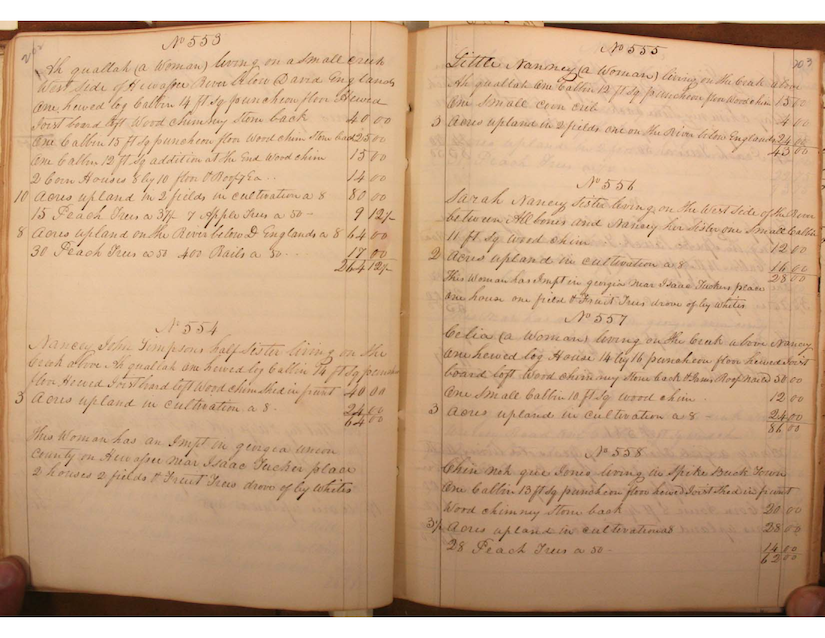 202
No 553
Ah quallah (a Woman) living on a Small Creek
West Side of Hiwassee River below David Englands
One hewed log Cabbin 14 ft Sq puncheon floor Hewed
Joist board loft Wood chimney Stone back 40 00
One Cabbin 15 ft Sq puncheon floor Wood chim Stone back 25 00
One Cabbin 12 ft Sq addition at the End Wood chim 15 00
2 Corn Houses 8 by 10 floor & Roof 7 Ea 14 00
10 Acres upland in 2 fields in cultivation a 8 80 00
15 Peach Trees a 37½ 7 Apple Trees a 50 - 9 12½
8 Acres upland on the River below D Englands a 8 64 00
30 Peach Trees a 50 400 Rails a 50 - 17 00
264 12½
No 554
Nancey John Timpsons half Sister living on the
Creek above Ah quallah one hewed log Cabbin 14 ft Sq puncheon
floor Hewed Joist board loft Wood chim Shed in front 40 00
3 Acres upland in cultivation a 8 - 24 00
64 00
This Woman has an Impt in georgia union
County on Hiwassee near Isaac Tucker place
2 houses 2 fields & Fruit Trees drove of by Whites
203
No 555
Little Nanney (a Woman) living on the Creek above
Ah quallah One Cabbin 12 ft Sq puncheon floor Wood chim 15 00
One Small corn crib 4 00
3 Acres upland in 2 fields one on the River below Englands 24 00
43 00
No 556
Sarah Nanceys Sister living on the West Side of the River
between All bones and Nancey her Sister one Small Cabbin
11 ft Sq Wood chim 12 00
2 Acres upland in cultivation a 8 16 00
28 00
This Woman has Impt in georgia near Isaac Tuckers place
One house one field & Fruit Trees drove of by Whites
No 557
Celia (a Woman) living on the Creek above Nancy
One hewed log House 14 by 16 puncheon floor hewed Joist
board loft Wood chimney Stone back & Jams Roof nailed 50 00
One Small Cabbin 10 ft Sq wood chim - 12 00
3 Acres upland in cultivation a 8 - 24 00
86 00
No 558
Chin nok que Jones living in Spike Buck Town
One Cabbin 13 ft Sq puncheon floor hewed Joist Shed in front
Wood chimney Stone back 20 00
3½ Acres upland in cultivation a 8 28 00
28 Peach Trees a 50 - 14 00
62 00